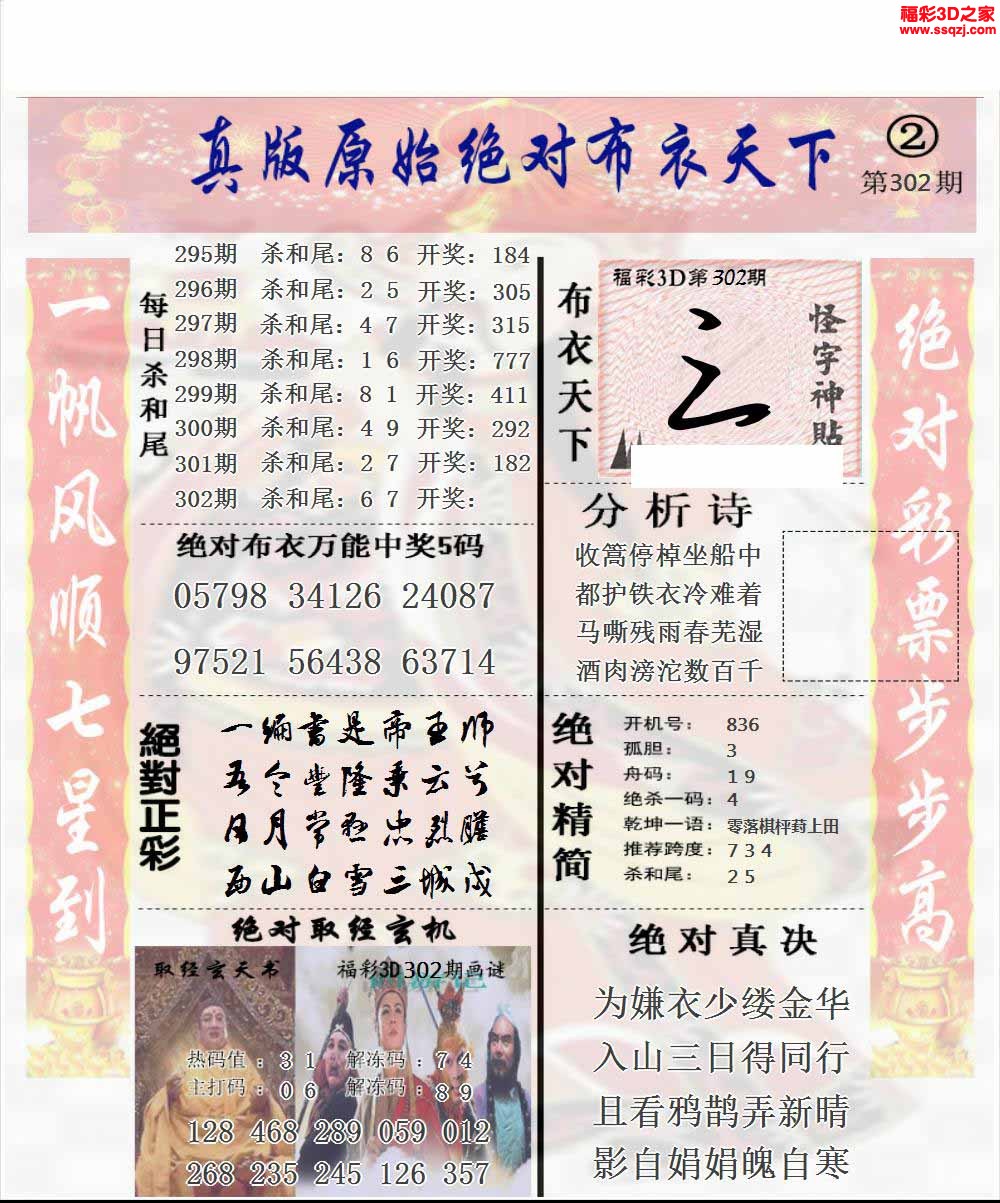 福彩3D之家
www.ssqzj.com
真版原始绝对布衣天下
②
第302期
一帆风顺七星到
每日杀和尾
295期 杀和尾：8 6 开奖：184
296期 杀和尾：2 5 开奖：305
297期 杀和尾：4 7 开奖：315
298期 杀和尾：1 6 开奖：777
299期 杀和尾：8 1 开奖：411
300期 杀和尾：4 9 开奖：292
301期 杀和尾：2 7 开奖：182
302期 杀和尾：6 7 开奖：
绝对布衣万能中奖5码
05798 34126 24087
97521 56438 63714
絕對正彩
一编书是帝王师
吾令豐隆乘云兮
日月常悬忠烈膽
西山白雪三城戍
绝对取经玄机
取经玄天书
福彩3D302期画谜
热码值：3 1 解冻码：7 4
主打码：0 6 解冻码：8 9
128 468 289 059 012
268 235 245 126 357
布衣天下
福彩3D第302期
怪字神贴
分析诗
收篙停棹坐船中
都护铁衣冷难着
马嘶残雨春芜湿
酒肉滂沱数百千
绝对精简
开机号：836
孤胆：3
舟码：1 9
绝杀一码：4
乾坤一语：零落棋枰葑上田
推荐跨度：7 3 4
杀和尾：2 5
绝对真决
为嫌衣少缕金华
入山三日得同行
且看鸦鹊弄新晴
影自娟娟魄自寒
绝对彩票步步高